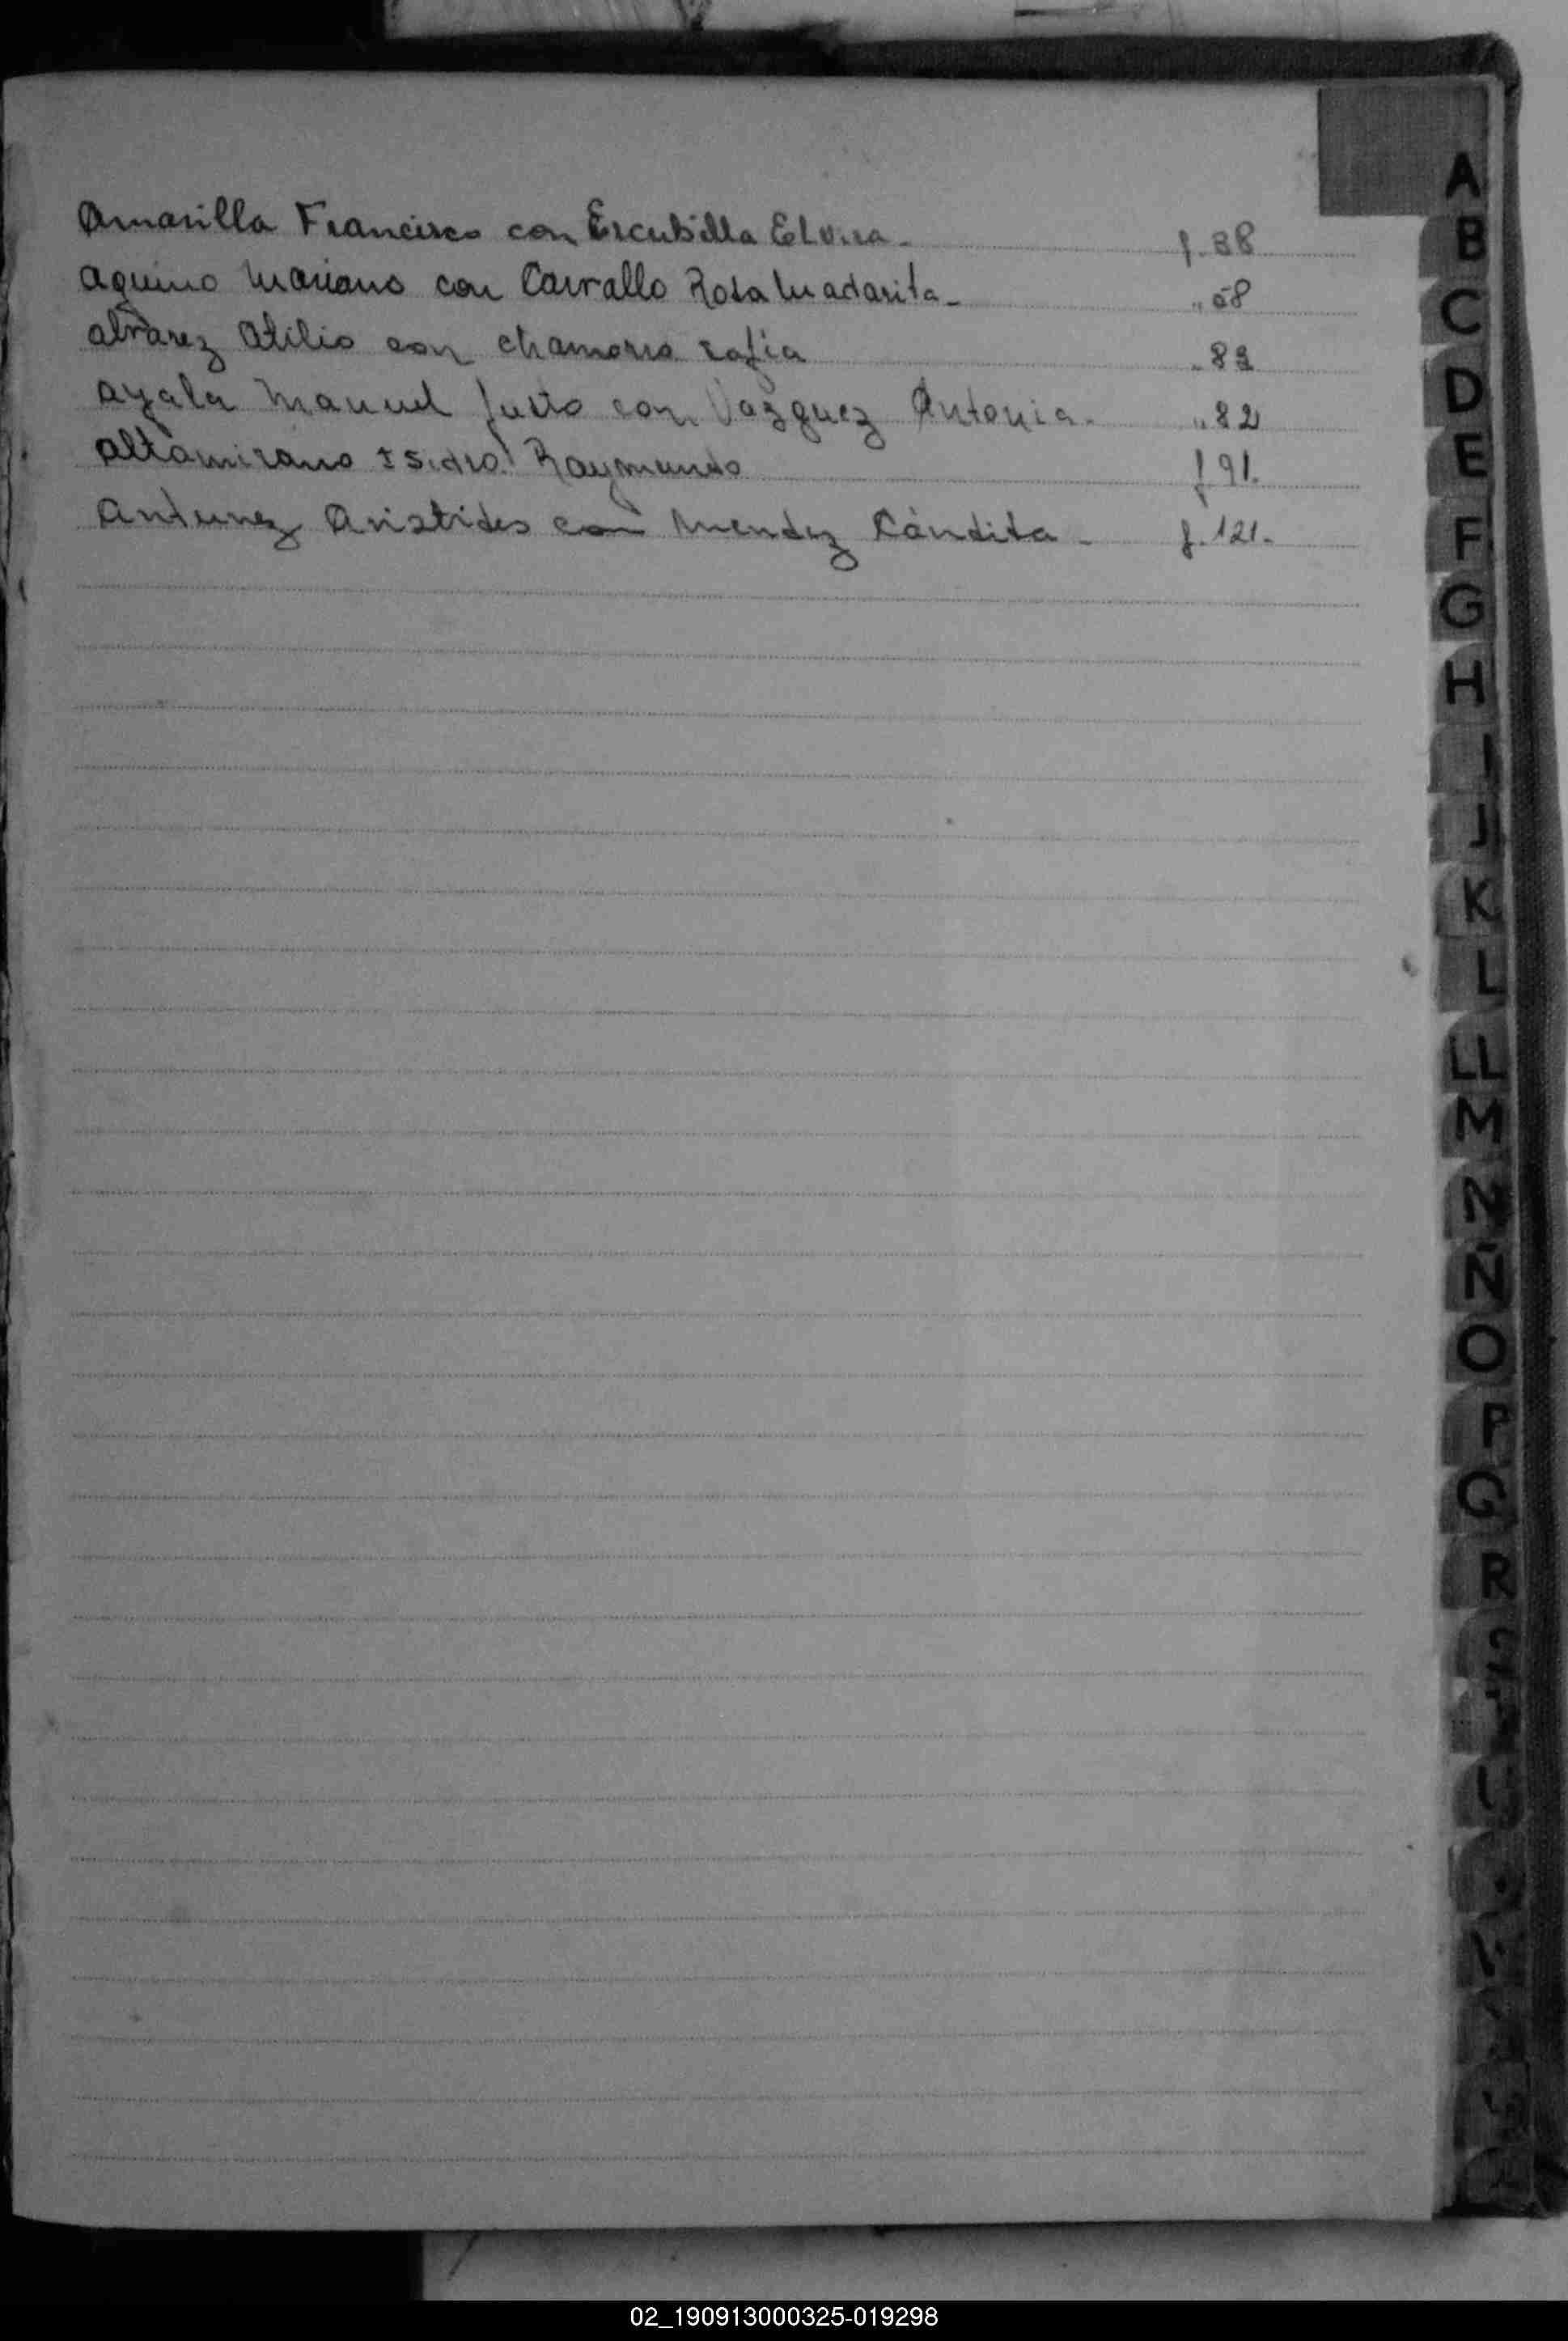 Amarilla Francisco con Escubilla Elvira. f. 38
Aquino Mariano con Carrallo Rosa Madarita " 58
Alvarez Atilio con chamorro sofia " 83
Ayala Manuel Justo con Vazquez Antonia. " 82
Altamirano Isidro Raymundo f 91.
Antunez Aristides con Mendez Cándita - f. 121.
A
B
C
D
E
F
G
H
I
J
K
L
LL
M
N
Ñ
O
P
R
02_190913000325-019298